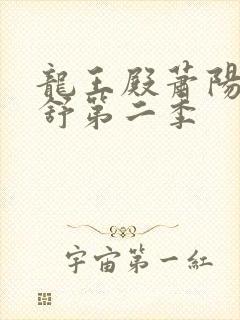 龍王殿蕭陽
舒第二季
宇宙第一紅